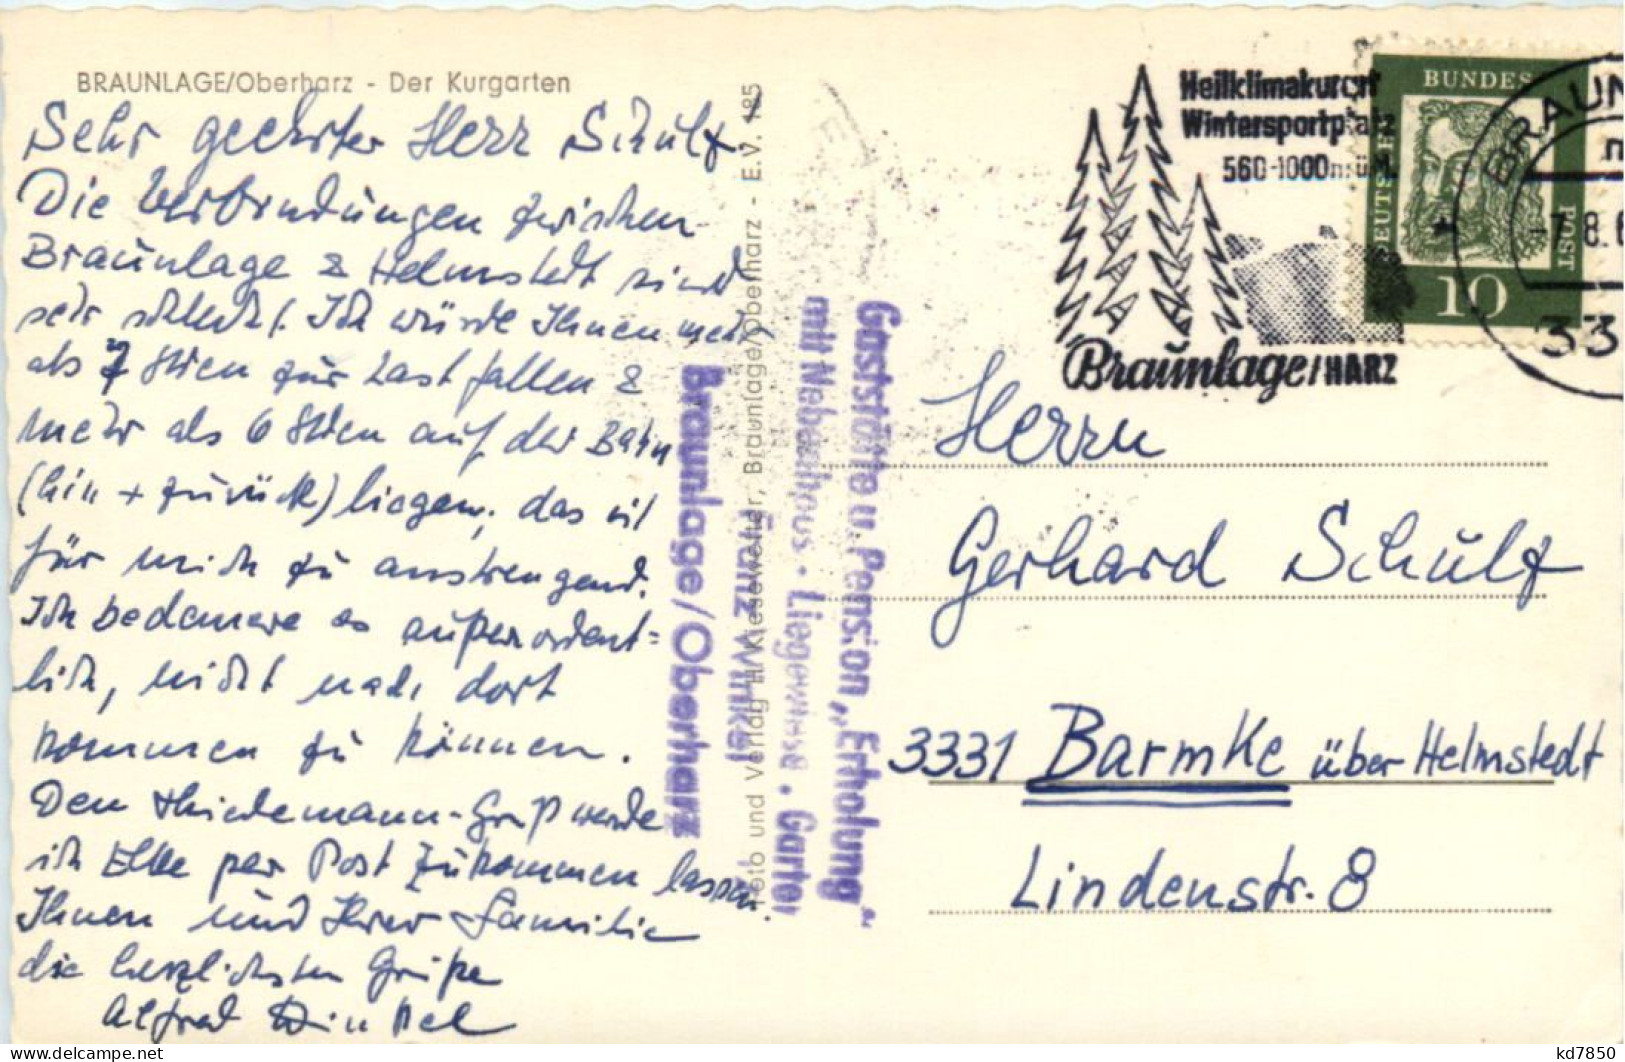 BRAUNLAGE/Oberharz - Der Kurgarten
Sehr geehrter Herr Schulz
Die Verbindungen zwischen
Braunlage & Helmstedt sind
sehr schlecht. Ich würde Ihnen mehr
als 7 Stden zur Last fallen &
mehr als 6 Stden auf der Bahn
(hin + zurück) liegen, das ist
für mich zu anstrengend.
Ich bedauere es außerordent=
lich, nicht nach dort
kommen zu können.
Den Thiedemann-Gruß werde
ich Elke per Post zukommen lassen.
Ihnen und Ihrer Familie
die herzlichsten Grüße
Alfred Winkel
Foto und Verlag H. Kiesewetter, Braunlage/Oberharz - E.V. 185
Gaststätte u. Pension „Erholung"
mit Nebenhaus · Liegewiese · Garten
Franz Winkel
Braunlage/Oberharz
Heilklimakurort
Wintersportplatz
560-1000m ü.M.
Braunlage/HARZ
DEUTSCHE
BUNDES
POST
10
BRAUN
-7.8.6
33
Herrn
Gerhard Schulz
3331 Barmke über Helmstedt
Lindenstr. 8
kd7850